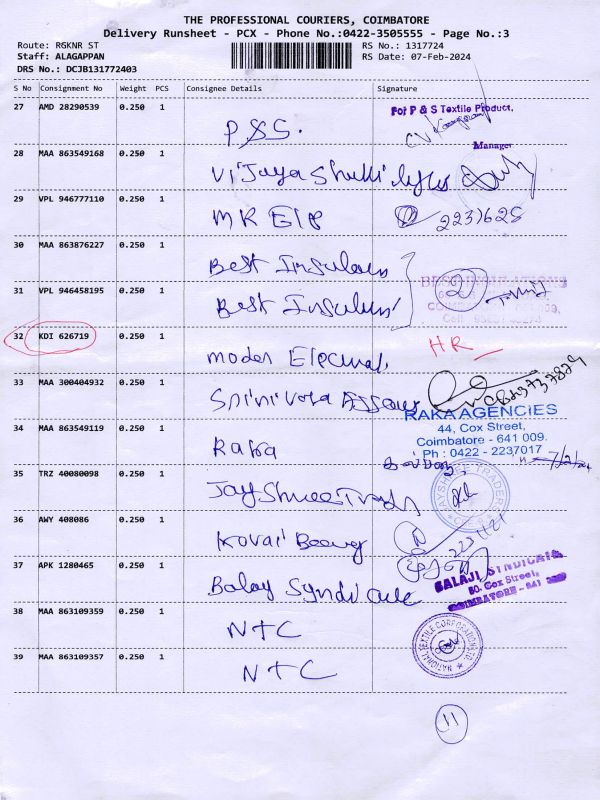 THE PROFESSIONAL COURIERS, COIMBATORE
Delivery Runsheet - PCX - Phone No.:0422-3505555 - Page No.:3
Route: RGKNR ST RS No.: 1317724
Staff: ALAGAPPAN RS Date: 07-Feb-2024
DRS No.: DCJB131772403
S No Consignment No Weight PCS Consignee Details Signature
27 AMD 28290539 0.250 1 P&S. For P & S Textile Product,
Manager
28 MAA 863549168 0.250 1 Vijaya
29 VPL 946777110 0.250 1 MR Elp 2231625
30 MAA 863876227 0.250 1 Best
31 VPL 946458195 0.250 1 Best 2
32 KDI 626719 0.250 1 HR
33 MAA 300404932 0.250 1
34 MAA 863549119 0.250 1 Raka
RAKA AGENCIES
44, Cox Street,
Coimbatore - 641 009.
Ph : 0422 - 2237017
7/2/24
35 TRZ 40080098 0.250 1 Jay Shree
36 AWY 408086 0.250 1 Kovai
37 APK 1280465 0.250 1 Balay Syndicate
BALAJI SYNDICATE
80, Cox Street,
COIMBATORE - 641
38 MAA 863109359 0.250 1 NTC
NATIONAL TEXTILE CORPORATION LTD
39 MAA 863109357 0.250 1 NTC
11